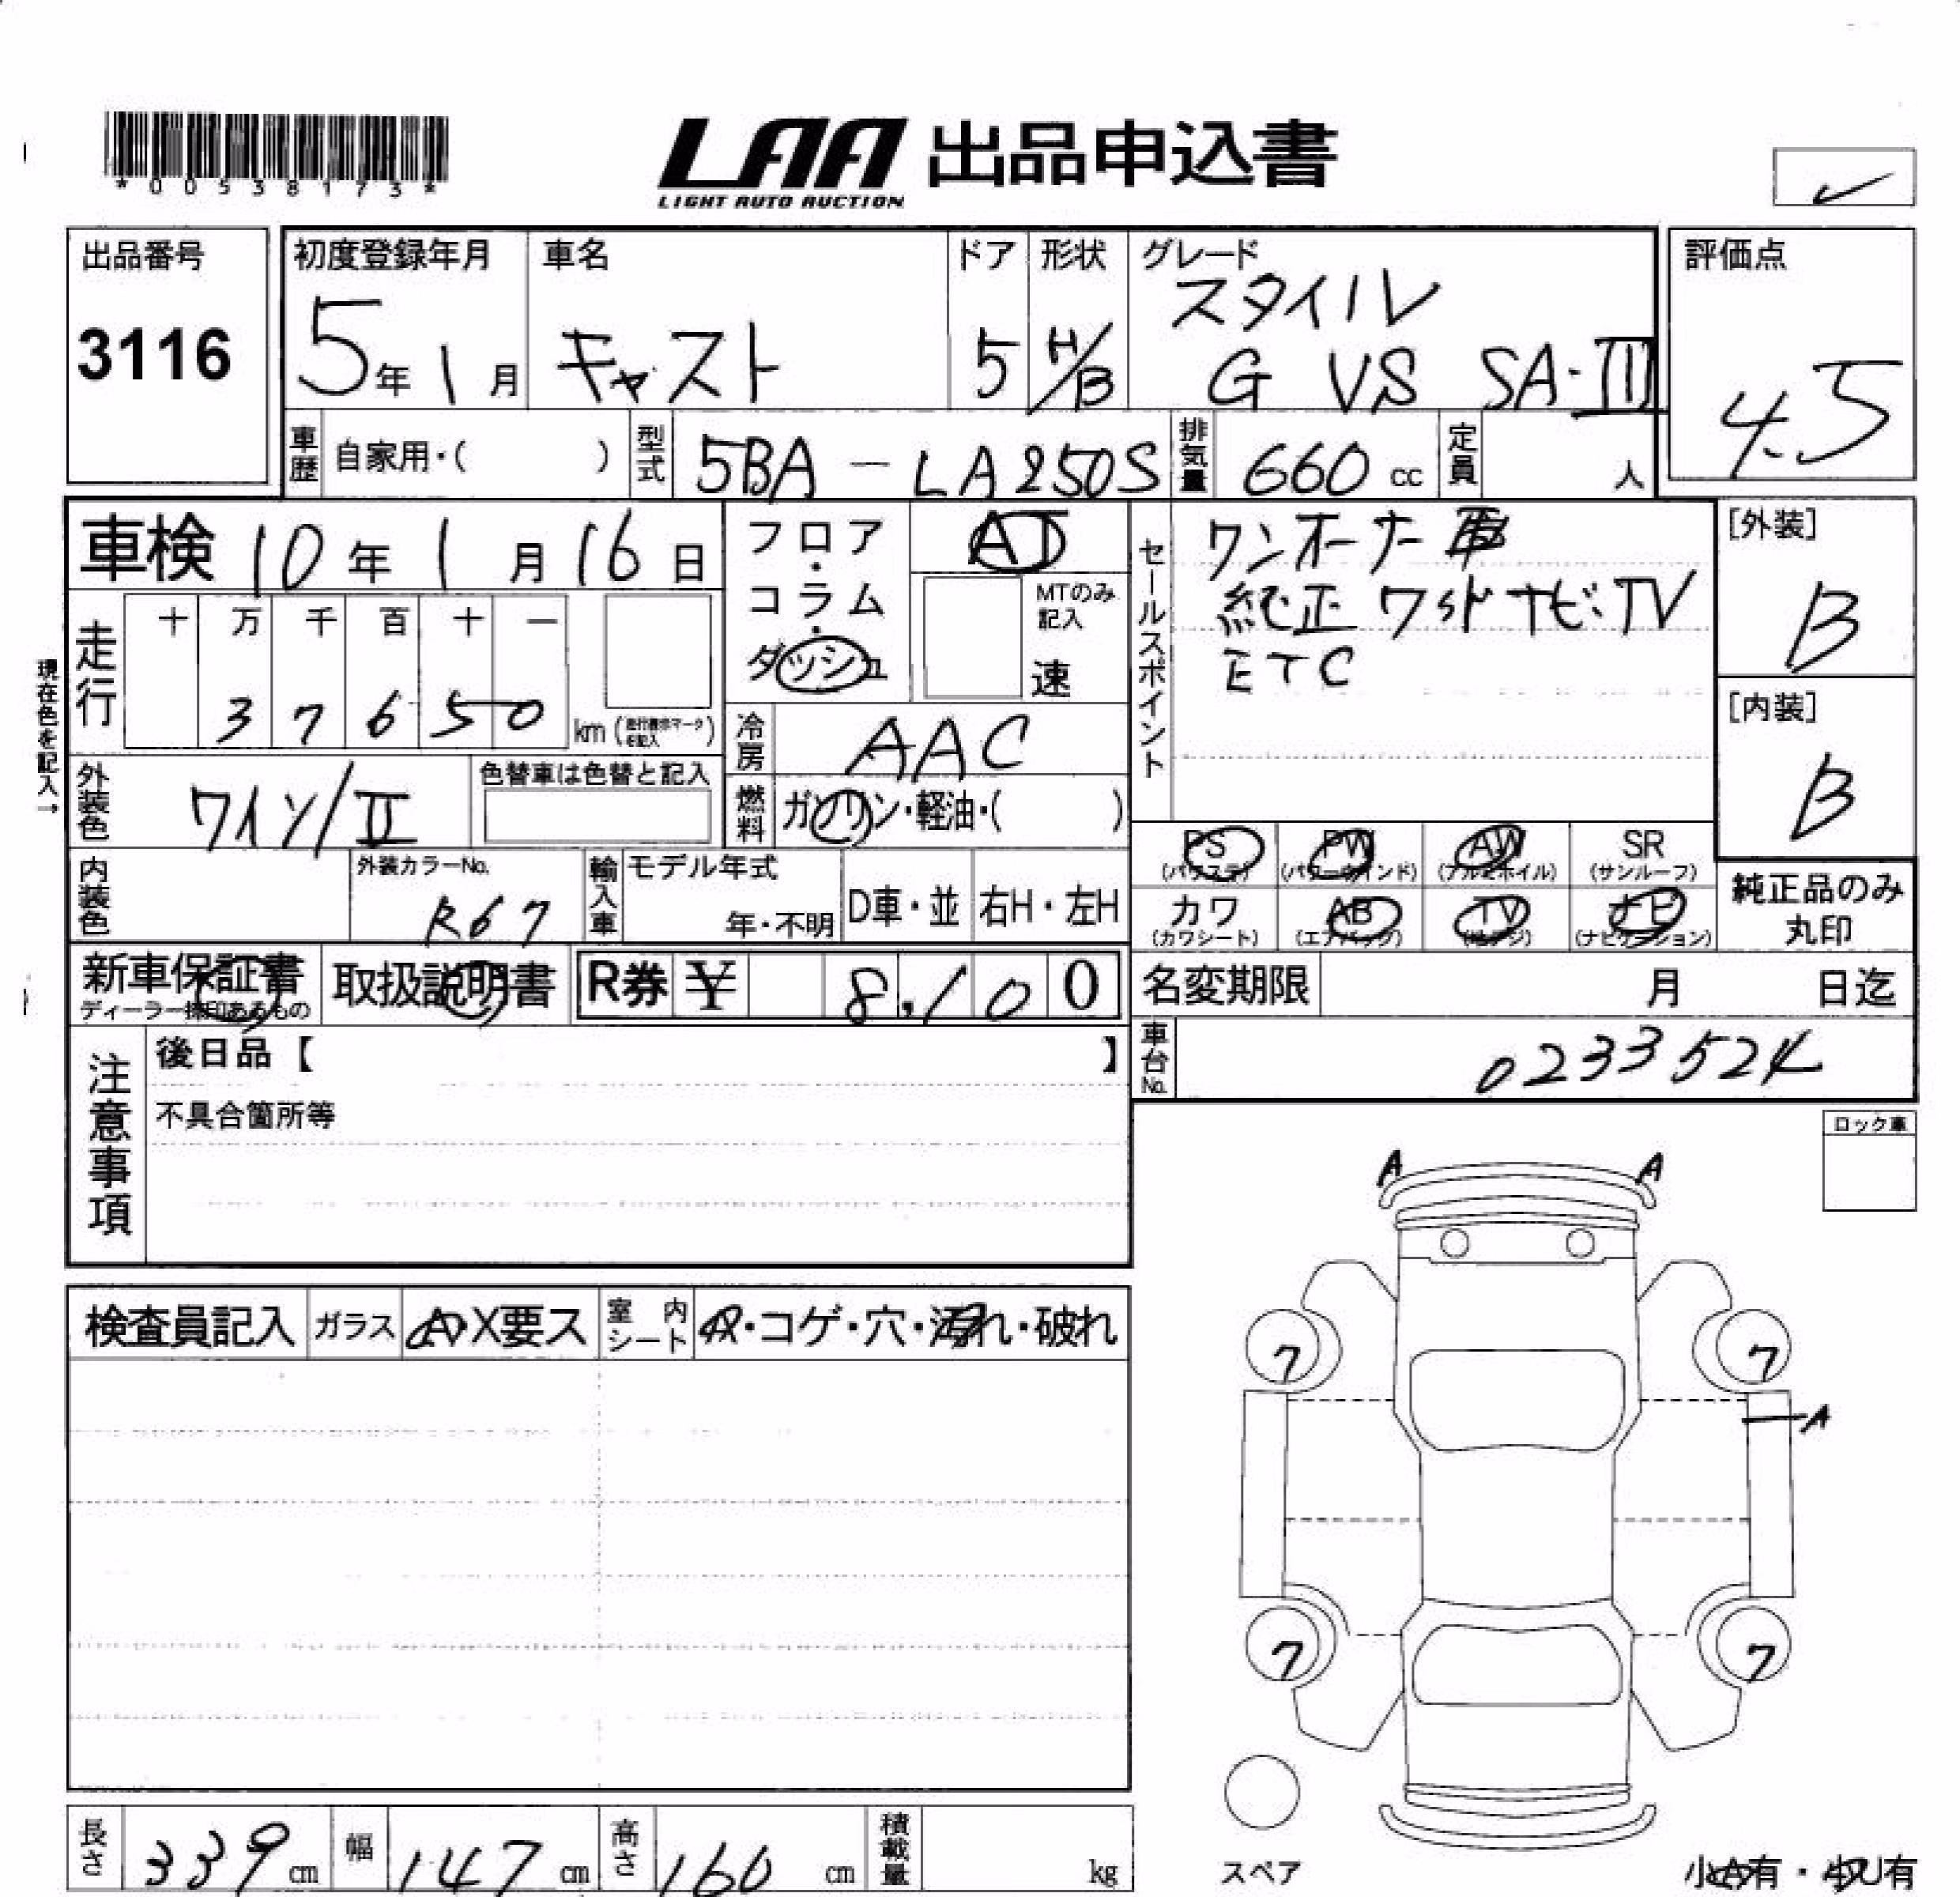 *00538173*
LAA 出品申込書
LIGHT AUTO AUCTION
出品番号
3116
初度登録年月
5年1月
車名
キャスト
ドア
5
形状
H/B
グレード
スタイル
G VS SA・III
評価点
4.5
車歴 自家用・( )
型式 5BA-LA250S
排気量 660 cc
定員 人
車検 10年1月16日
フロア・コラム・ダッシュ
AT
MTのみ記入
速
セールスポイント
ワンオーナー車
純正ワイドナビ・TV
ETC
[外装]
B
[内装]
B
現在色を記入→
走行
十 万 千 百 十 一
3 7 6 5 0
km
冷房 AAC
燃料 ガソリン・軽油・( )
外装色 ワイン/II
色替車は色替と記入
内装色
外装カラーNo.
R67
輸入車
モデル年式
年・不明
D車・並
右H・左H
PS
(パワステ)
PW
(パワーウインド)
AW
(アルミホイル)
SR
(サンルーフ)
カワ
(カワシート)
AB
(エアバック)
TV
(テレビ)
ナビ
(ナビゲーション)
純正品のみ
丸印
新車保証書
取扱説明書
R券 ¥ 8,100
名変期限 月 日迄
車台No. 0233524
注意事項
後日品【 】
不具合箇所等
ロック車
A A
検査員記入
ガラス A X要ス
室内シート A・コゲ・穴・汚れ・破れ
7 7
A
7 7
スペア
小A有・小U有
長さ 339 cm
幅 147 cm
高さ 160 cm
積載量 kg